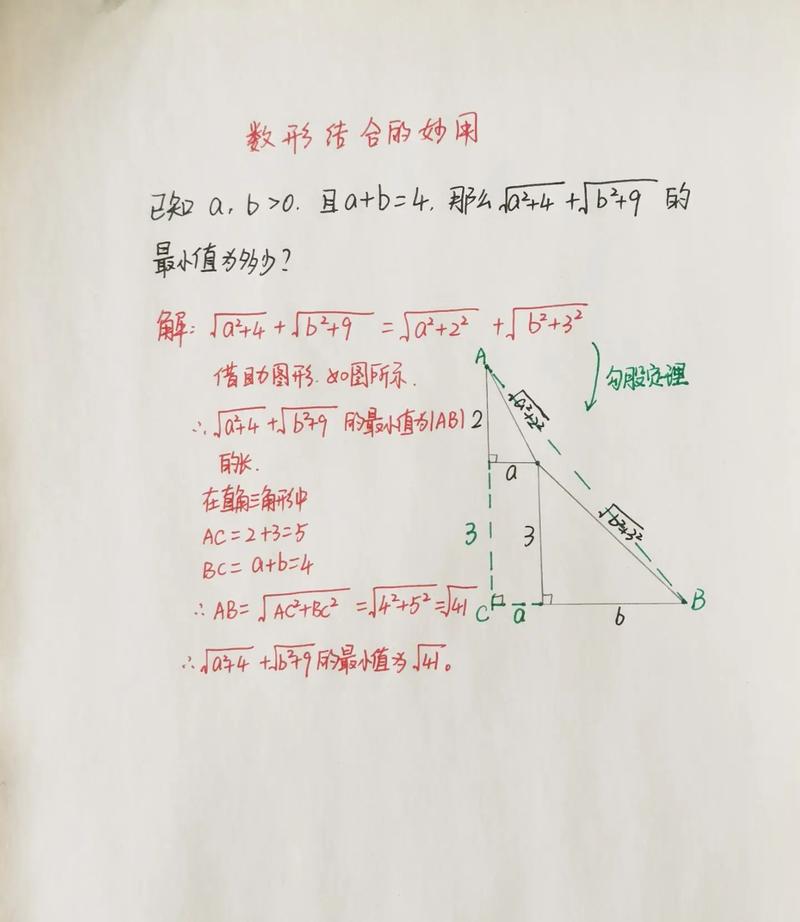 数形结合的妙用
已知 a, b>0. 且a+b=4. 那么√(a²+4)+√(b²+9) 的
最小值为多少?
解: √(a²+4)+√(b²+9) =√(a²+2²) +√(b²+3²)
借助图形. 如图所示.
勾股定理
∴√(a²+4)+√(b²+9) 的最小值为|AB|
的长.
在直角三角形中
AC=2+3=5
BC=a+b=4
∴AB=√(AC²+BC²) =√(4²+5²)=√41
∴√(a²+4)+√(b²+9)的最小值为√41。
A
√(a²+2²)
2
a
3
3
√(b²+3²)
C
a
b
B